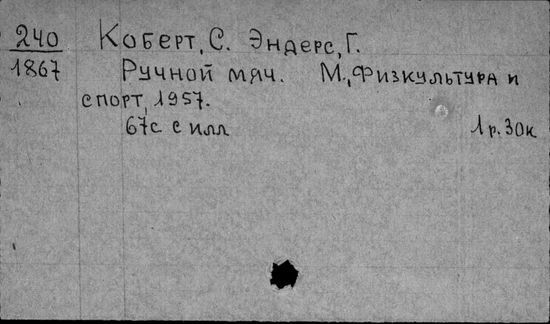 240 Коберт, С. Эндерс, Г.
1867 Ручной мяч. М., Физкультура и
спорт, 1957.
67с с илл 1р. 30к